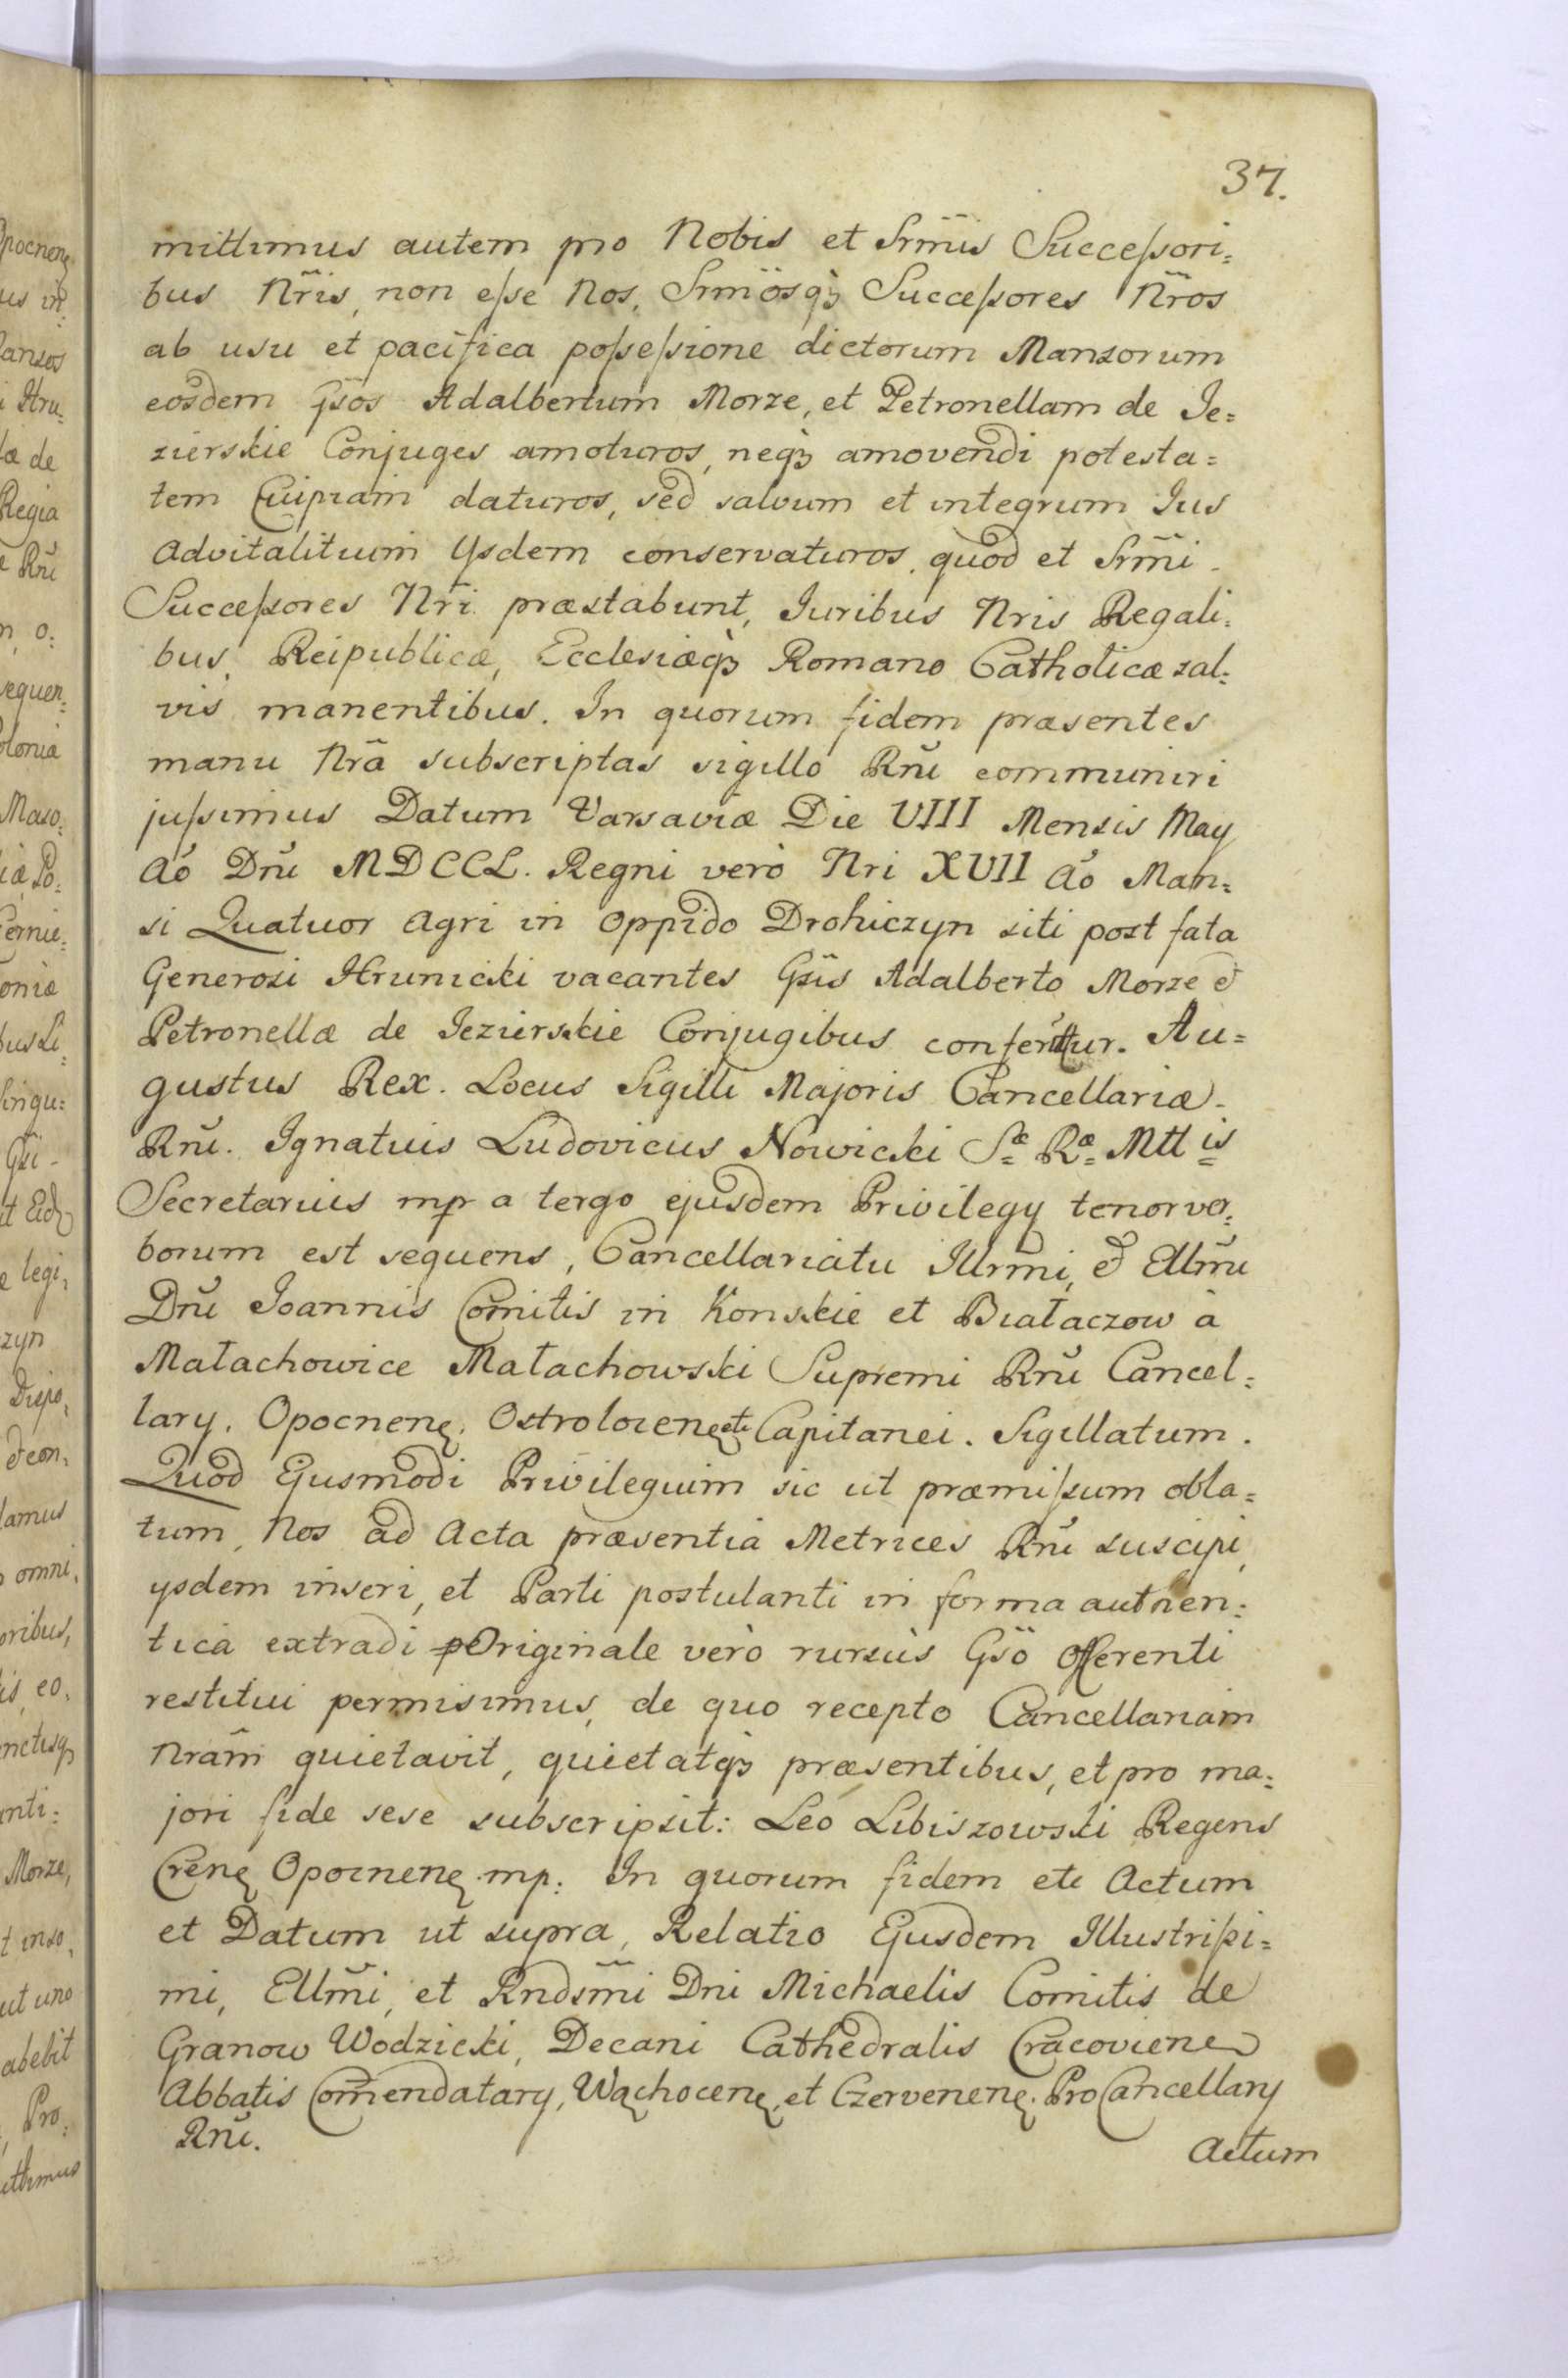 37.
mittimus autem pro Nobis et Srm̃is Succeſsori=
bus Nr̃is, non eſse Nos, Srm̃osq̃ Succeſsores Nr̃os
ab usu et pacifica poſseſsione dictorum Mansorum
eosdem Gs̃os Adalbertum Morze, et Petronellam de Je=
zierskie Conjuges amoturos, neq̃ amovendi potesta=
tem Cuipiam daturos, sed salvum et integrum Jus
Advitalitium Ysdem conservaturos, quod et Srm̃i
Succeſsores Nr̃i præstabunt, Juribus Nris Regali=
bus, Reipublicæ, Ecclesiæq̃ Romano Catholicæ sal=
vis manentibus. In quorum fidem præsentes
manu Nr̃a subscriptas sigillo Rñi communiri
juſsimus Datum Varsaviæ Die VIII Mensis May
Aõ Dñi MDCCL. Regni verò Nri XVII Aõ Man=
si Quatuor Agri in Oppido Drohiczyn siti post fata
Generosi Hrunicki vacantes Gs̃is Adalberto Morze et
Petronellæ de Jezierskie Conjugibus conferũtur. Au=
gustus Rex. Locus Sigilli Majoris Cancellariæ
Rñi. Ignatius Ludovicus Nowicki Sæ Ræ Mttis
Secretarius mp a tergo ejusdem Privilegy tenor ver=
borum est sequens, Cancellariatu Illrmi, et Ellm̃i
Dñi Joannis Comitis in Konskie et Białaczow à
Małachowice Małachowski Supremi Rñi Cancel=
lary, Opocnenȩ, Ostrolocenȩ etc Capitanei. Sigillatum.
Quod Ejusmodi Privilegium sic ut præmiſsum obla=
tum, Nos ad Acta præsentia Metrices Rñi suscipi,
ysdem inseri, et Parti postulanti in forma authen=
tica extradi Originale verò rursùs Gs̃o Offerenti
restitui permisimus, de quo recepto Cancellariam
Nrãm quietavit, quietatq̃ præsentibus, et pro ma=
jori fide sese subscripsit: Leo Libiszowski Regens
Cr̃enȩ Opocnenȩ mp: In quorum fidem etc Actum
et Datum ut supra, Relatio Ejusdem Illustriſsi=
mi, Ellm̃i, et Rndsm̃i Dni Michaelis Comitis de
Granow Wodzicki, Decani Cathedralis Cracovienȩ
Abbatis Com̃endatary, Wąchocenȩ, et Czervenenȩ. ProCancellary
Rñi.
Actum